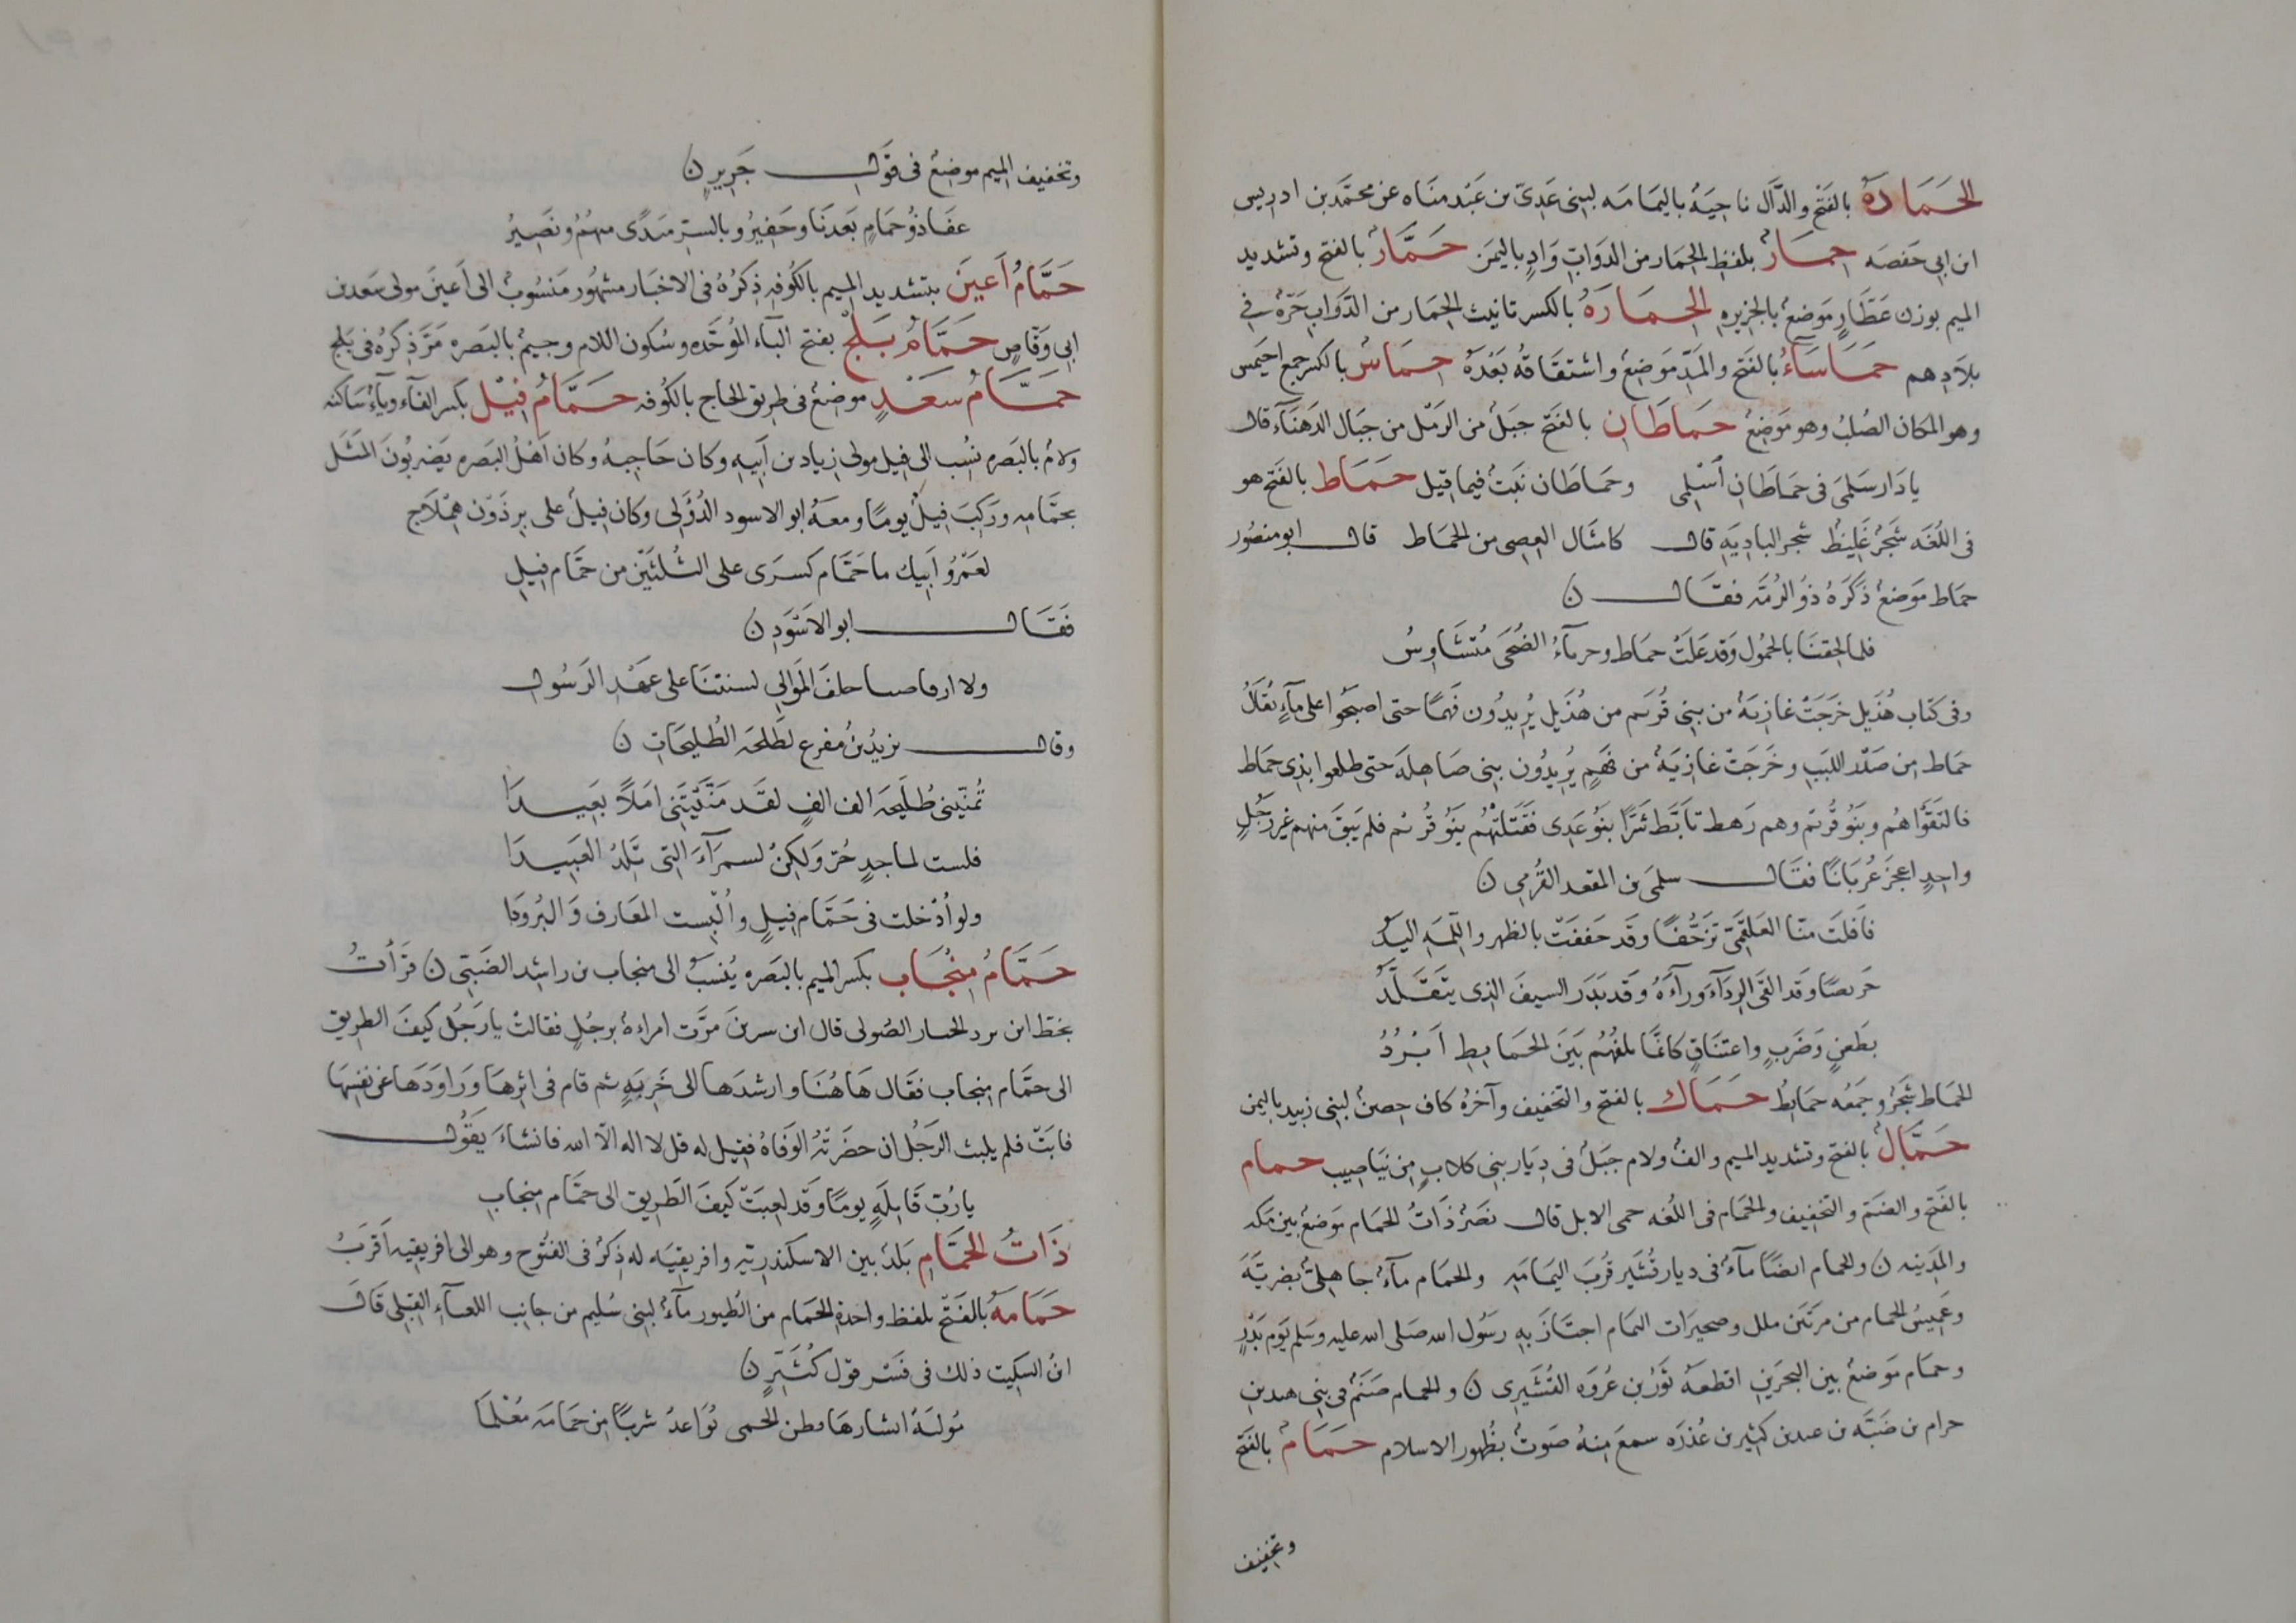 الحَمَادَةُ بالفَتْح والدَّال ناحِيَةٌ باليمَامَه لبنى عَدِىّ بن عَبْد منَاه عن محمّد بن ادريس
ابن ابى حَفصَه حِمَارٌ بلفظِ الحِمَار من الدَوَابِ وَادٍ باليَمَن حَمَّارٌ بالفتح وتشديد
الميم بوزن عَطَّارٍ مَوضعٌ بالجزيرهِ الحِمَارَةُ بالكسر تانيث الحِمَار من الدَّوَابِ حَرّةٌ فى
بلاَدِهم حَمَاسَآءُ بالفَتح والمَدِّ مَوضِعٌ واشتقَاقهُ بَعْدَهُ حِمَاسٌ بالكسر جمع احمَس
وهو المكان الصُلبُ وهو مَوَضِعٌ حَمَاطَانِ بالفَتح جبَلٌ من الرَمْل من جبَال الدَهنَآء قال
يا دَار سَلمَى فى حَمَاطَانِ اَسْلِمى وحمَاطَان نَبتٌ فيما قيل حَمَاط بالفَتح هو
فى اللُغَه شَجَرٌ غَلِيظٌ شجر البادِيَهِ قال كامثَال العِصِى من الحَمَاط قال ابو منصُور
حمَاط مَوَضعٌ ذكَرَهُ ذُو الرُمّه فقَال ن
فلما لحِقنَا بالحُمُول وَقد عَلَتْ حمَاط وحرباءُ الضُحَى مُتشَاوِسُ
وفى كتَاب هُذَيل خَرَجَتْ غازِيَةٌ من بنى قُرَيم من هُذَيل يُرِيدُون فَهمًا حتى اصبَحُوا على مآءٍ يُقَالُ
حمَاط مِن صَدْر اللِيَبِ وخَرَجَتْ غازيَةٌ من فَهمٍ يُرِيدُون بنى صَاهِلَه حتى طلعوا بذِى حمَاط
فالتَقَوْا هُم وبَنَو قُريْم وهم رَهط تَأَبَّطَ شَرًّا بنُو عَدِى فقَتَلتْهُم بَنُو قُريْم فلم يَبقَ منهم غير رَجُلٍ
واحِدٍ اعجَزَ عُريَانًا فقَال سلمَى بن المقعد القُرَمى ن
فافَلتَ منّا العَلقَمِىّ تزَحُّفًا وقد خفقَتْ بالظهر واللِّمَّهِ اليَدُ
حَريصًا وَقد القَى الرِدَآءَ ورآءَهُ وَقد بَدَر السيفَ الذى يتَقَلَّدُ
بطَعنٍ وَضَربٍ واعتنَاقٍ كانمَا يلفُهُم بَينَ الحَمَايِطِ اَبْرُدُ
الحَمَاط شَجَرٌ وجَمعُه حمَايطُ حَمَاك بالفتح والتخفيف وآخرُهُ كاف حِصنٌ لبنِى زبيد باليمن
حَمَّالٌ بالفتح وتشديد الميم والفٌ ولام جَبَلٌ فى دِيَار بنى كلابٍ مِن يَنَاصِيب حمام
بالفَتح والضَمّ والتخفيف والحُمَام فى اللُغَه حمى الابل قال نَصَرٌ ذَاتُ الحمَام مَوَضعٌ بين مكه
والمَدِينه ن والحمام ايضًا مآءٌ فى ديار قُشَير قُربَ اليَمَامَهِ والحمَام مآءٌ جاهِلىٌ بضرِيَّةَ
وغَمِيسُ الحمام من مَرّيَين ملل وصحيرَات اليمَام اجتَازَ بهِ رسَوُل الله صَلى الله عليه وسَلم يوم بَدْرٍ
وحمَام مَوَضعٌ بين البحرَينِ اقطعَهُ ثَوْرُ بن عُروَه القُشَيرِى ن والحمام صَنَمٌ فى بنِى هند بن
حرام بن ضَبَّه بن عبد بن كَبير بن عُذرَه سمعَ مِنهُ صَوتٌ بظُهور الاسلام حَمَامٌ بالفَتح
وتخفيف
وتخفيف الميم موضِعٌ فى قوَل جَريرٍ ن
عَفَا ذُو حمَامٍ بَعدَنَا وحَفِيرُ وبالسِتر مَبدًى منهُمُ ونَصِيرُ
حَمَّامُ اَعْيَن بتشديد الميم بالكُوفهِ ذِكرُهُ فى الاخبَار مشهُور مَنسُوبٌ الى اَعيَنَ مولى سَعد بن
ابى وَقاصٍ حَمَّامُ بَلجْ بفتح البآء المُوحَّدَه وسُكون اللام وجيمٌ بالبَصره مَرَّ ذِكرُهُ فى بَلج
حَمَّامُ سَعْدٍ موضِعٌ فى طريق الحاج بالكُوفه حَمَّامُ فِيْل بكسر الفآء ويآءٌ سَاكنه
ولامٌ بالبَصره نُسِب الى فيل مولى زياد بن اَبيهِ وكان حَاجِبهُ وكان اَهْلُ البَصره يَضربُونَ المَثَل
بحمّامِه ورَكِبَ فِيلٌ يومًا ومعَهُ ابو الاسود الدُؤَلِى وكان فيلٌ على بِرذَوْن هِمْلاَجٍ
لعَمْرُ اَبيك ما حَمّام كسرَى على الثُلثَيْن من حَمّام فيلِ
فَقَال ابو الاَسْوَدِ ن
ولا ارقاصنا حلفَ المَوَالِى لسنتنَا على عَهْدِ الرَسُول
وقال يزيدُ بنُ مفرع لطَلحَه الطُليحَاتِ ن
تُمَنّينى طُلَيحَه الف الفٍ لقَد مَنَّيتَنِى امَلاً بَعِيدَا
فلست لماجدٍ حُرٍ وَلكِنْ لسمرَآءَ التِى تَلِدُ العَبِيدَا
ولو اُدْخلت فى حَمّام فِيلٍ واُلْبِست المعَارف وَالبُرودَا
حَمَّامُ مِنْجَاب بكسر الميم بالبَصره يُنسَبُ الى منجاب بن راشِد الضَبّى ن قرَأتُ
بخطّ ابن برد الحسار الصُولى قال ابن سرينَ مرَّت امراةٌ برجُلٍ فقالتْ يا رَجُل كيفَ الطريق
الى حمّام مِنجاب فقَال هَاهُنَا وارشدَها الى خَرِبَهٍ ثم قام فى اثرِهَا ورَاودَهَا عن نفسِهَا
فابَتْ فلم يلبث الرَجُل ان حضرَتْهُ الوَفاهُ فقيل له قل لا اله الّا الله فانشاءَ يقَوُل
يا رُبّ قَايلَهٍ يومًا وَقد لعِبَتْ كَيفَ الطَرِيق الى حمّام مِنجابِ
ذَاتُ الحمَّامِ بَلدٌ بين الاسكندريّه وافريقِيَه له ذِكرٌ فى الفتُوح وهو الى افريقيه اَقرَبُ
حَمَامَهُ بالفَتْح بلفظ واحِدة الحمَام من الطُيور مآءٌ لبنى سُليم من جانِب اللعبَآءِ القبلى قَال
ابنُ السِكِيت ذلك فى فسَّر قوَل كُثيِّرٍ ن
مُوليَةً ايسَارهَا بطن الحمى تُوَاعِدُ شربًا مِن حَمَامَه مُعْلَمَا